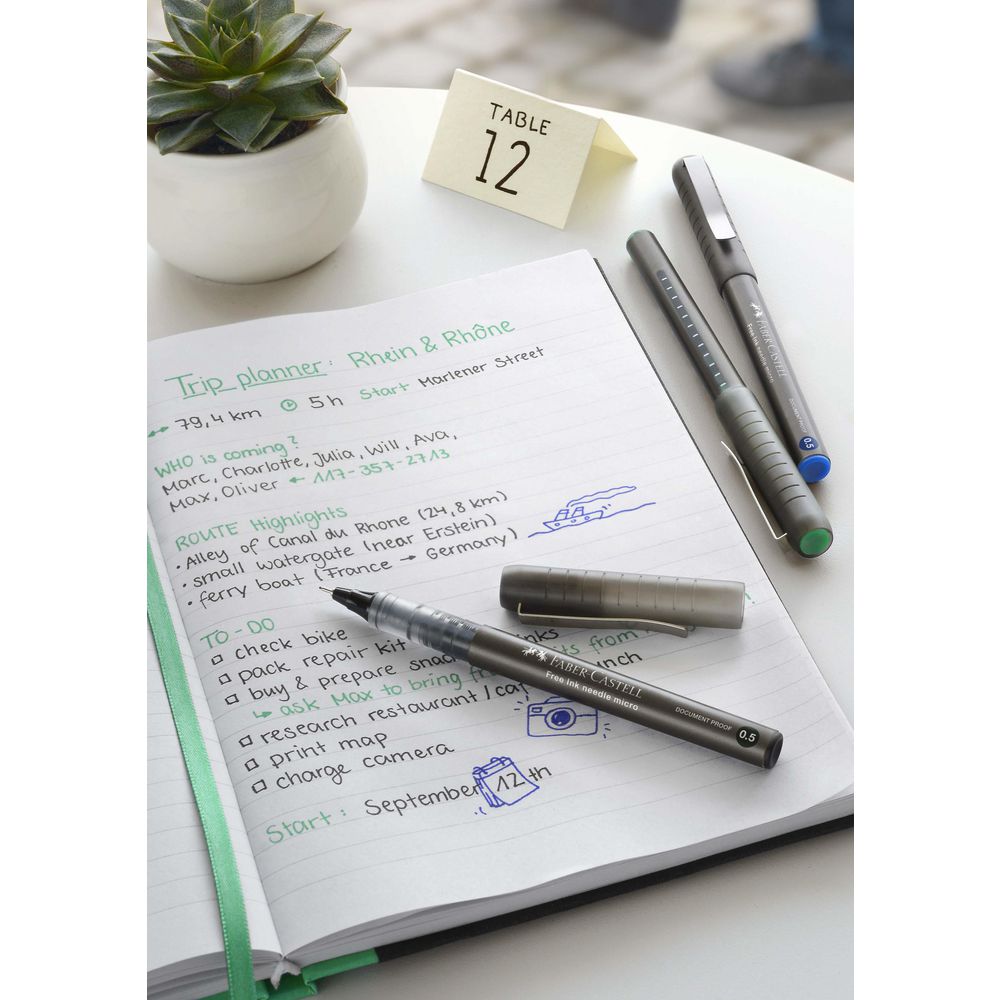 TABLE
12
Trip planner: Rhein & Rhône
79,4 km 5 h Start Marlener Street
WHO is coming?
Marc, Charlotte, Julia, Will, Ava,
Max, Oliver ← 117-357-2713
ROUTE Highlights
• Alley of Canal du Rhone (24,8 km)
• small watergate (near Erstein)
• ferry boat (France → Germany)
TO-DO
check bike
pack repair kit
buy & prepare
ask Max to bring from
research restaurant /
print map
charge camera
Start: September 12 th
FABER CASTELL
Free ink needle micro
DOCUMENT PROOF
0.5
FABER CASTELL
Free ink needle micro
DOCUMENT PROOF
0.5